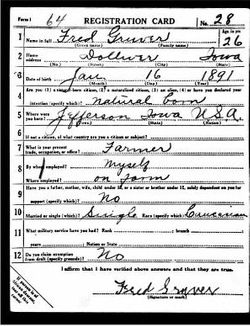 Form 1 64 REGISTRATION CARD No. 28
1 Name in full Fred Gruver Age, in yrs. 26
(Given name) (Family name)
2 Home address Dolliver Iowa
(No.) (Street) (City) (State)
3 Date of birth Jan. 16 1891
(Month) (Day) (Year)
4 Are you (1) a natural-born citizen, (2) a naturalized citizen, (3) an alien, (4) or have you declared your
intention (specify which)? natural born
5 Where were you born? Jefferson Iowa USA
(Town) (State) (Nation)
6 If not a citizen, of what country are you a citizen or subject?
7 What is your present trade, occupation, or office? Farmer
8 By whom employed? Myself
Where employed? on farm
9 Have you a father, mother, wife, child under 12, or a sister or brother under 12, solely dependent on you for
support (specify which)? No
10 Married or single (which)? Single Race (specify which)? Caucasian
11 What military service have you had? Rank branch
years Nation or State
12 Do you claim exemption from draft (specify grounds)? No
I affirm that I have verified above answers and that they are true.
Fred Gruver
(Signature or mark)